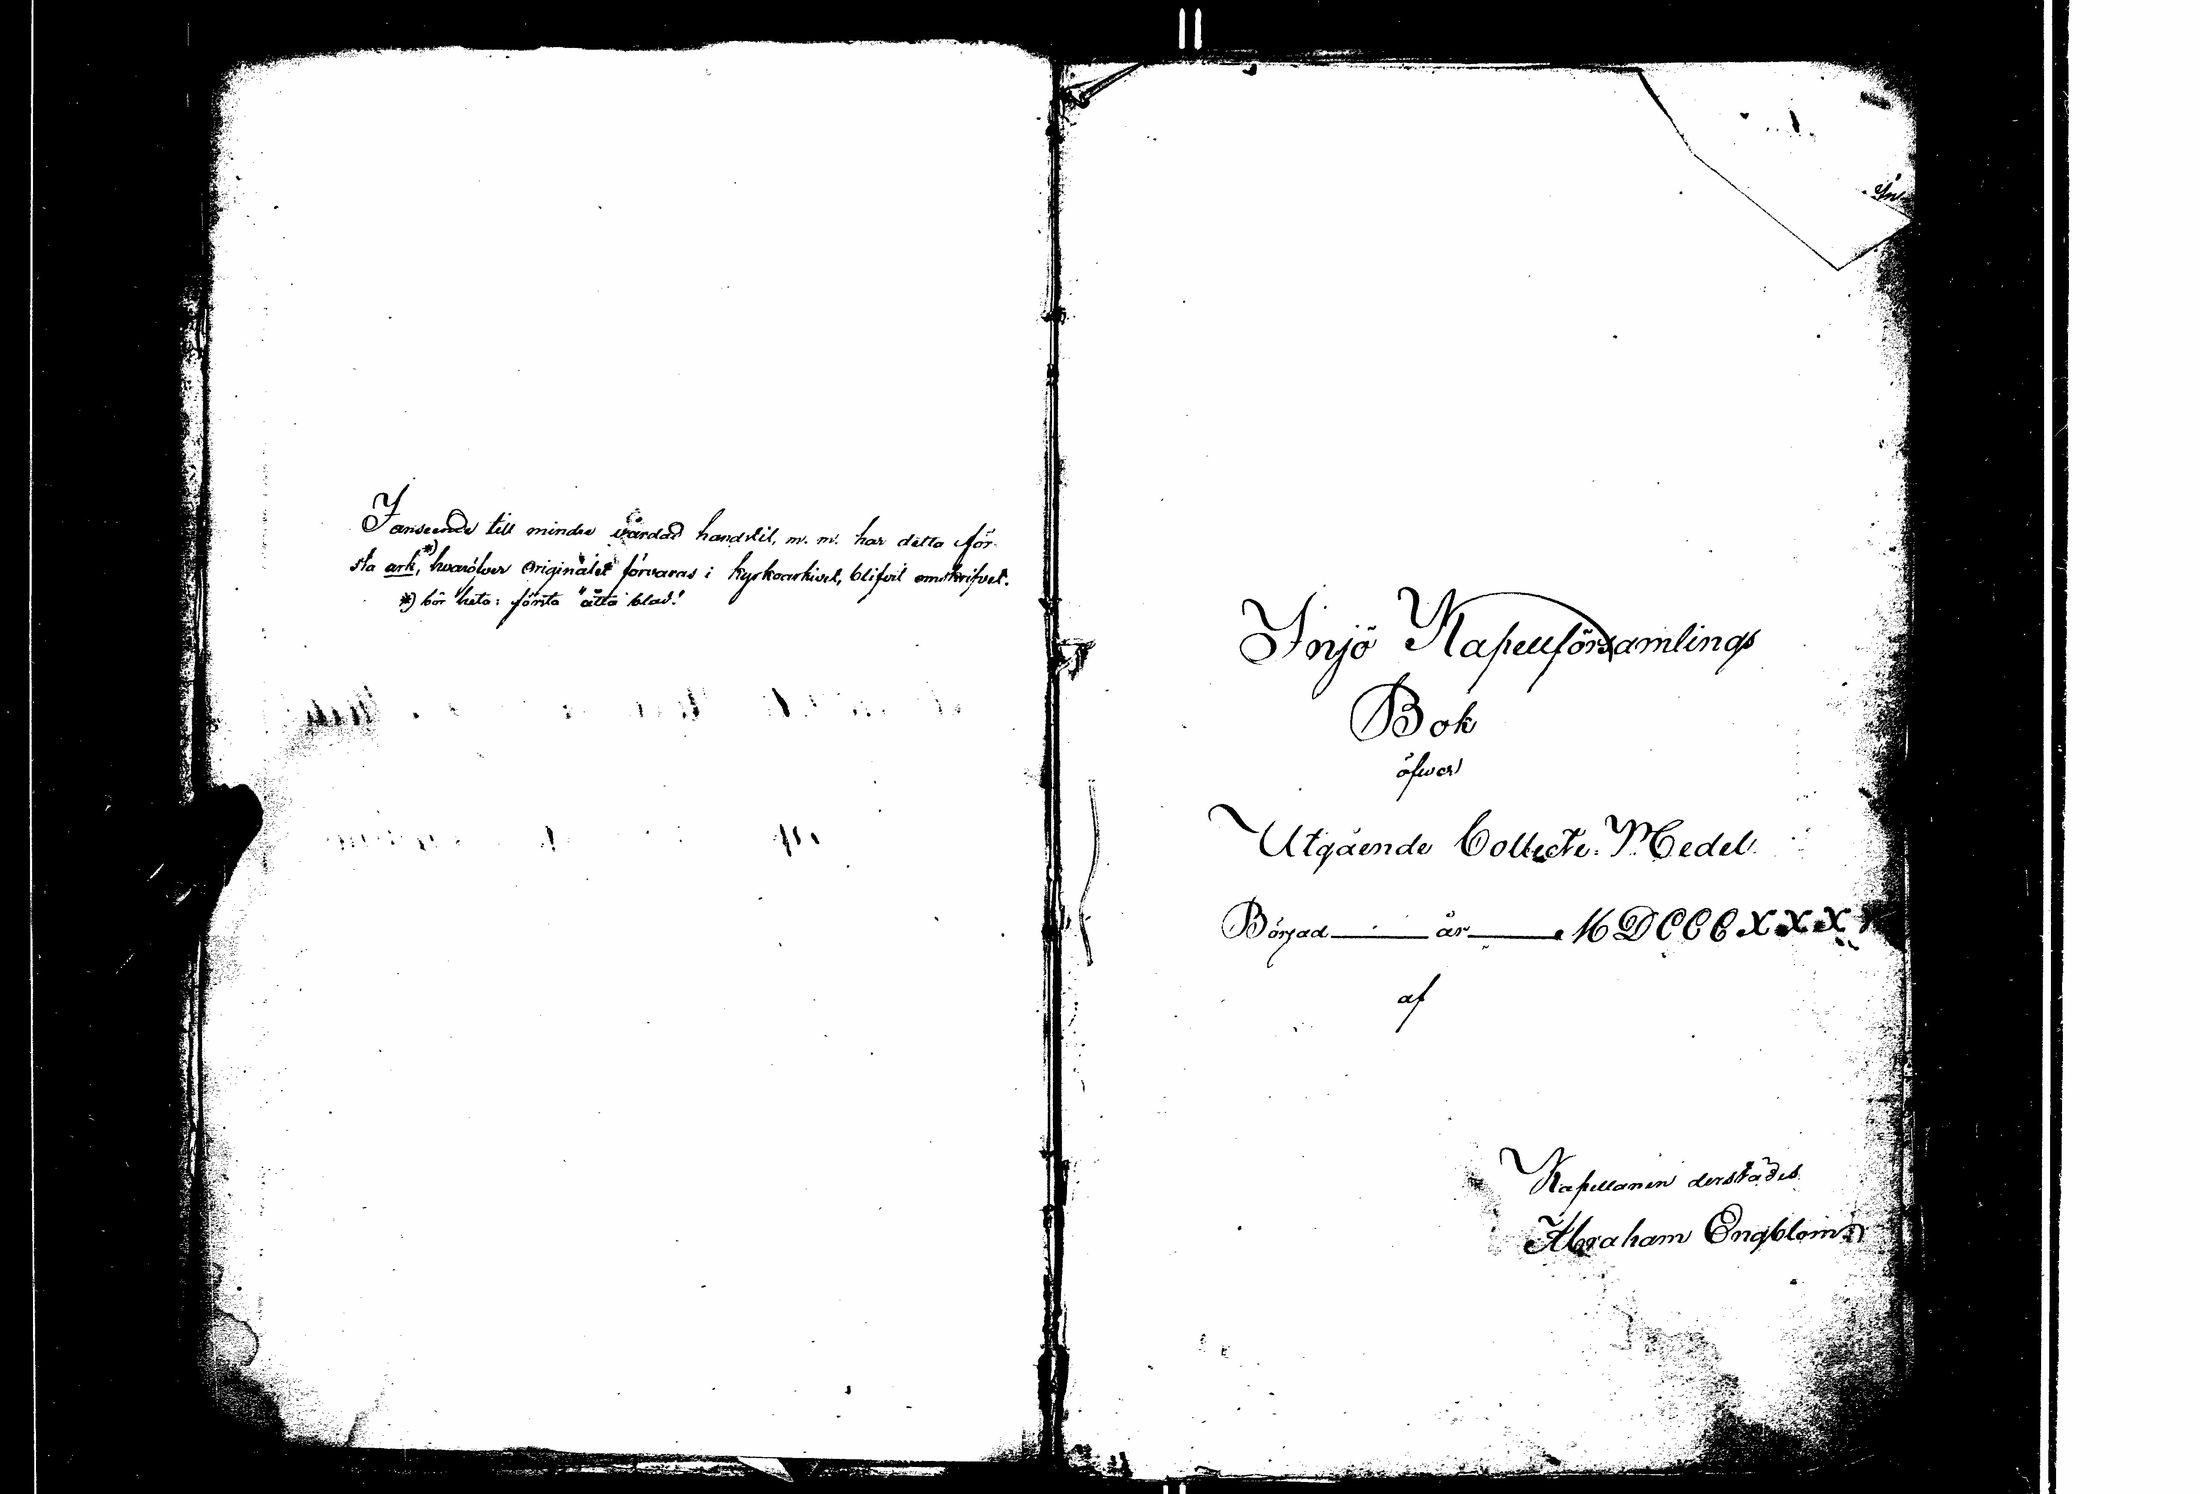 I anseende till mindre vårdad handstil, m. m. har detta för-
sta ark,*) hvaröfver originalet förvaras i kyrkoarkivet, blifvit omskrifvet.
*) bör heta: första "åtta blad."
Injö Kapellförsamlings
Bok
öfwer
Utgående Collecte-Medel.
Börjad ____ år ____ MDCCCXXX
af
Kapellanen derstädes
Abraham Engblom